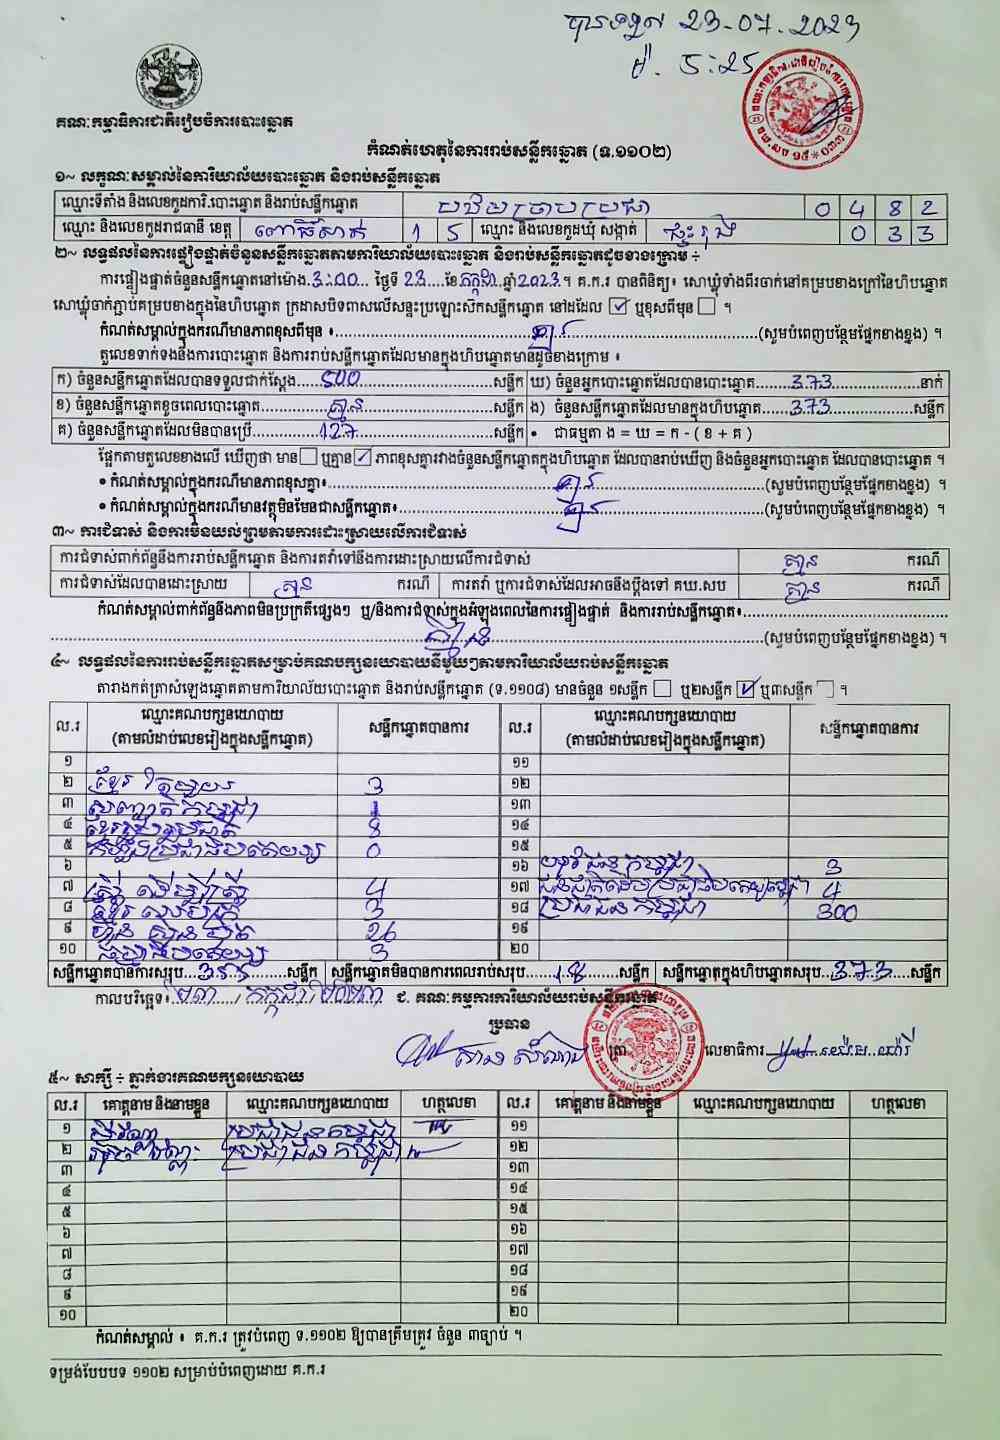 បានទទួល 23-07-2023
ម៉. 5:25
គណៈកម្មាធិការជាតិរៀបចំការបោះឆ្នោត
កំណត់ហេតុនៃការរាប់សន្លឹកឆ្នោត (ទ.១១០២)
១~ លក្ខណៈសម្គាល់នៃការិយាល័យបោះឆ្នោត និងរាប់សន្លឹកឆ្នោត
ឈ្មោះទីតាំង និងលេខកូដការិ.បោះឆ្នោត និងរាប់សន្លឹកឆ្នោត 0 4 8 2
ឈ្មោះ និងលេខកូដរាជធានី ខេត្ត ពោធិ៍សាត់ 1 5 ឈ្មោះ និងលេខកូដឃុំ សង្កាត់ ផ្ទះរុង 0 3 3
២~ លទ្ធផលនៃការផ្ទៀងផ្ទាត់ចំនួនសន្លឹកឆ្នោតតាមការិយាល័យបោះឆ្នោត និងរាប់សន្លឹកឆ្នោតដូចខាងក្រោម ÷
ការផ្ទៀងផ្ទាត់ចំនួនសន្លឹកឆ្នោតនៅម៉ោង 3:00 ថ្ងៃទី 23 ខែ កក្កដា ឆ្នាំ 2023 ។ គ.ក.រ បានពិនិត្យ៖ សោឃ្លុំទាំងពីរចាក់នៅគម្របខាងក្រៅនៃហិបឆ្នោត
សោឃ្លុំចាក់ភ្ជាប់គម្របខាងក្នុងនៃហិបឆ្នោត ក្រដាសបិទពាសលើសន្ទះប្រឡោះសិកសន្លឹកឆ្នោត នៅដដែល ☑ ឬខុសពីមុន ☐ ។
កំណត់សម្គាល់ក្នុងករណីមានភាពខុសពីមុន ៖ គ្មាន (សូមបំពេញបន្ថែមផ្នែកខាងខ្នង) ។
តួលេខទាក់ទងនឹងការបោះឆ្នោត និងការរាប់សន្លឹកឆ្នោតដែលមានក្នុងហិបឆ្នោតមានដូចខាងក្រោម ៖
ក) ចំនួនសន្លឹកឆ្នោតដែលបានទទួលជាក់ស្តែង 500 សន្លឹក ឃ) ចំនួនអ្នកបោះឆ្នោតដែលបានបោះឆ្នោត 373 នាក់
ខ) ចំនួនសន្លឹកឆ្នោតខូចពេលបោះឆ្នោត គ្មាន សន្លឹក ង) ចំនួនសន្លឹកឆ្នោតដែលមានក្នុងហិបឆ្នោត 373 សន្លឹក
គ) ចំនួនសន្លឹកឆ្នោតដែលមិនបានប្រើ 127 សន្លឹក • ជាធម្មតា ង = ឃ = ក - ( ខ + គ )
ផ្អែកតាមតួលេខខាងលើ ឃើញថា មាន ☐ ឬគ្មាន ☑ ភាពខុសគ្នារវាងចំនួនសន្លឹកឆ្នោតក្នុងហិបឆ្នោត ដែលបានរាប់ឃើញ និងចំនួនអ្នកបោះឆ្នោត ដែលបានបោះឆ្នោត ។
• កំណត់សម្គាល់ក្នុងករណីមានភាពខុសគ្នា៖ គ្មាន (សូមបំពេញបន្ថែមផ្នែកខាងខ្នង) ។
• កំណត់សម្គាល់ក្នុងករណីមានវត្ថុមិនមែនជាសន្លឹកឆ្នោត៖ គ្មាន (សូមបំពេញបន្ថែមផ្នែកខាងខ្នង) ។
៣~ ការជំទាស់ និងការមិនយល់ព្រមតាមការដោះស្រាយលើការជំទាស់
ការជំទាស់ពាក់ព័ន្ធនឹងការរាប់សន្លឹកឆ្នោត និងការតវ៉ាទៅនឹងការដោះស្រាយលើការជំទាស់ គ្មាន ករណី
ការជំទាស់ដែលបានដោះស្រាយ គ្មាន ករណី ការតវ៉ា ឬការជំទាស់ដែលអាចនឹងប្តឹងទៅ គឃ.សប គ្មាន ករណី
កំណត់សម្គាល់ពាក់ព័ន្ធនឹងភាពមិនប្រក្រតីផ្សេងៗ ឬ/និងការជំទាស់ក្នុងអំឡុងពេលនៃការផ្ទៀងផ្ទាត់ និងការរាប់សន្លឹកឆ្នោត៖
គ្មាន (សូមបំពេញបន្ថែមផ្នែកខាងខ្នង) ។
៤~ លទ្ធផលនៃការរាប់សន្លឹកឆ្នោតសម្រាប់គណបក្សនយោបាយនីមួយៗតាមការិយាល័យរាប់សន្លឹកឆ្នោត
តារាងកត់ត្រាសំឡេងឆ្នោតតាមការិយាល័យបោះឆ្នោត និងរាប់សន្លឹកឆ្នោត (ទ.១១០៨) មានចំនួន ១សន្លឹក ☐ ឬ២សន្លឹក ☑ ឬ៣សន្លឹក ☐ ។
ល.រ ឈ្មោះគណបក្សនយោបាយ (តាមលំដាប់លេខរៀងក្នុងសន្លឹកឆ្នោត) សន្លឹកឆ្នោតបានការ ល.រ ឈ្មោះគណបក្សនយោបាយ (តាមលំដាប់លេខរៀងក្នុងសន្លឹកឆ្នោត) សន្លឹកឆ្នោតបានការ
១ ១១
២ ខ្មែរ តែមួយ 3 ១២
៣ សញ្ជាតិកម្ពុជា 1 ១៣
៤ ខ្មែររួបរួមជាតិ 8 ១៤
៥ កម្លាំងប្រជាធិបតេយ្យ 0 ១៥
៦ ១៦ យុវជនកម្ពុជា 3
៧ ស្ត្រី ដើម្បីស្ត្រី 4 ១៧ 4
៨ 3 ១៨ ប្រជាជនកម្ពុជា 300
៩ ហ៊្វុនស៊ិនប៉ិច 26 ១៩
១០ ធម្មាធិបតេយ្យ 3 ២០
សន្លឹកឆ្នោតបានការសរុប 355 សន្លឹក សន្លឹកឆ្នោតមិនបានការពេលរាប់សរុប 18 សន្លឹក សន្លឹកឆ្នោតក្នុងហិបឆ្នោតសរុប 373 សន្លឹក
កាលបរិច្ឆេទ៖ ២៣ / កក្កដា / ២០២៣ ជ. គណៈកម្មការការិយាល័យរាប់សន្លឹកឆ្នោត
ប្រធាន
ត្រា លេខាធិការ
៥~ សាក្សី ÷ ភ្នាក់ងារគណបក្សនយោបាយ
ល.រ គោត្តនាម និងនាមខ្លួន ឈ្មោះគណបក្សនយោបាយ ហត្ថលេខា ល.រ គោត្តនាម និងនាមខ្លួន ឈ្មោះគណបក្សនយោបាយ ហត្ថលេខា
១ ប្រជាជនកម្ពុជា ១១
២ ប្រជាជនកម្ពុជា ១២
៣ ១៣
៤ ១៤
៥ ១៥
៦ ១៦
៧ ១៧
៨ ១៨
៩ ១៩
១០ ២០
កំណត់សម្គាល់ ៖ គ.ក.រ ត្រូវបំពេញ ទ.១១០២ ឱ្យបានត្រឹមត្រូវ ចំនួន ៣ច្បាប់ ។
ទម្រង់បែបបទ ១១០២ សម្រាប់បំពេញដោយ គ.ក.រ